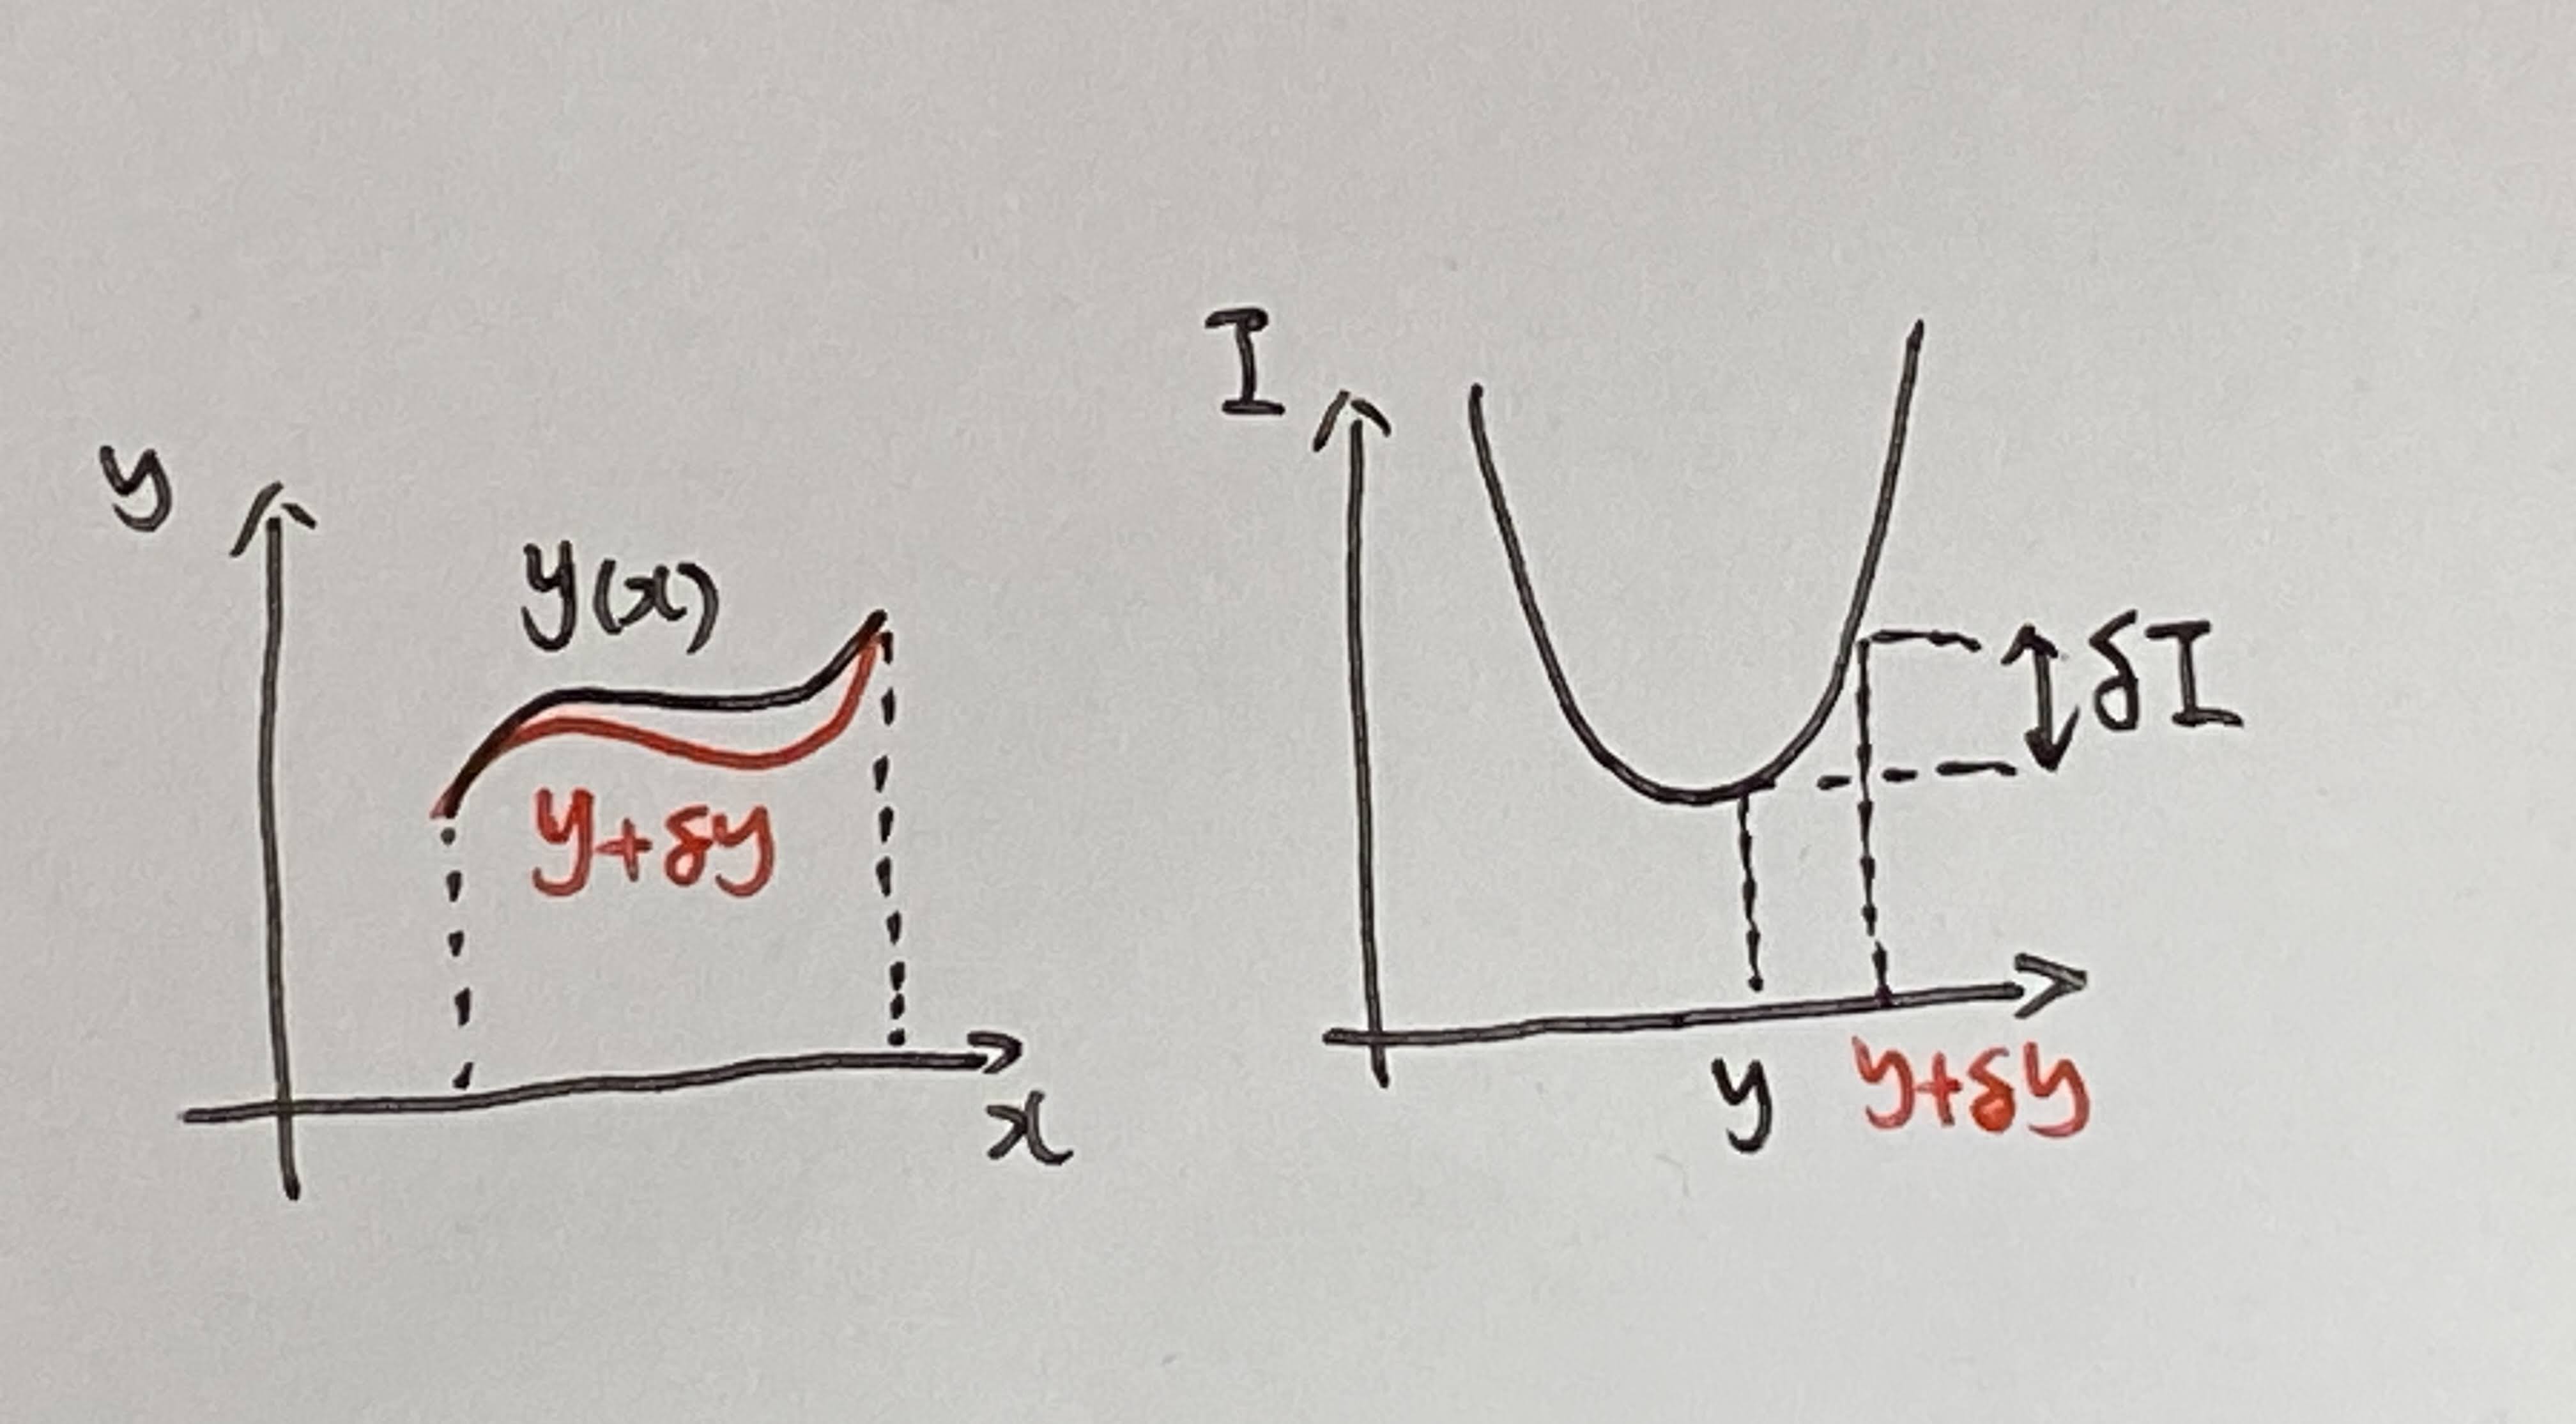 y
y(x)
y+δy
x
I
δI
y
y+δy